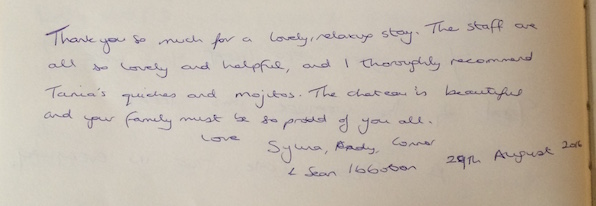 Thank you so much for a lovely, relaxing stay. The staff are
all so lovely and helpful, and I thoroughly recommend
Tania's quiches and mojitos. The chateau is beautiful
and your family must be so proud of you all.
Love
Sylvia, Andy, Connor
& Sean Ibbotson 29th August 2016